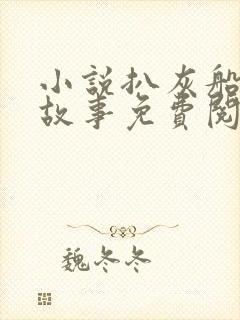 小説扒灰船
故事免費閱
魏冬冬